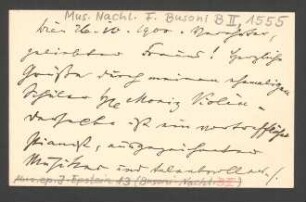 Mus. Nachl. F. Busoni B II, 1555
Wien 26. IV. 1900. Verehrter,
geliebter Freund! Herzliche
Grüße durch meinen ehemaligen
Schüler
derselbe ist ein vortrefflicher
Pianist, ausgezeichneter
Musiker und talentvoller
Mus. ep. J. Epstein 13 (Busoni-Nachl. B II)